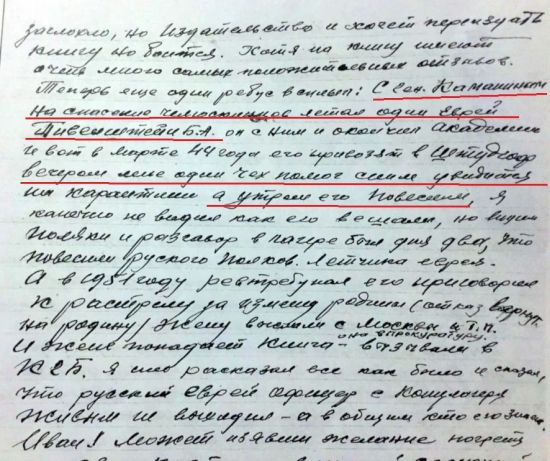 заглохло, но Издательство и хочет переиздать
книгу но боится. Хотя на книгу имеют
очень много самых положительных отзывов.
Теперь еще один ребус всплыл: С ген. Каманиным
на спасение челюскинцев летал один еврей
Пивенштейн Б.А. он с ним и окончил академию
и вот в марте 44 года его привозят в Штутгоф
вечером мне один чех помог с ним увидится
на карантине а утром его повесили, я
конечно не видил как его вешали, но видили
поляки и разговор в лагере был дня два, что
повесили руского полков. летчика еврея.
А в 1951 году ревтребунал его приговорил
к расстрелу за измену родины (отказ вернут.
на родину) жену выслали с Москвы и т.п.
И жене попадает книга - она в прокуратуру. вызывали в
КГБ. Я им расказал все как было и сказал,
что русский еврей офицер с Концлагеря
живым не выходил - а в общим кто его знает.
Иван! Может изявиш желание